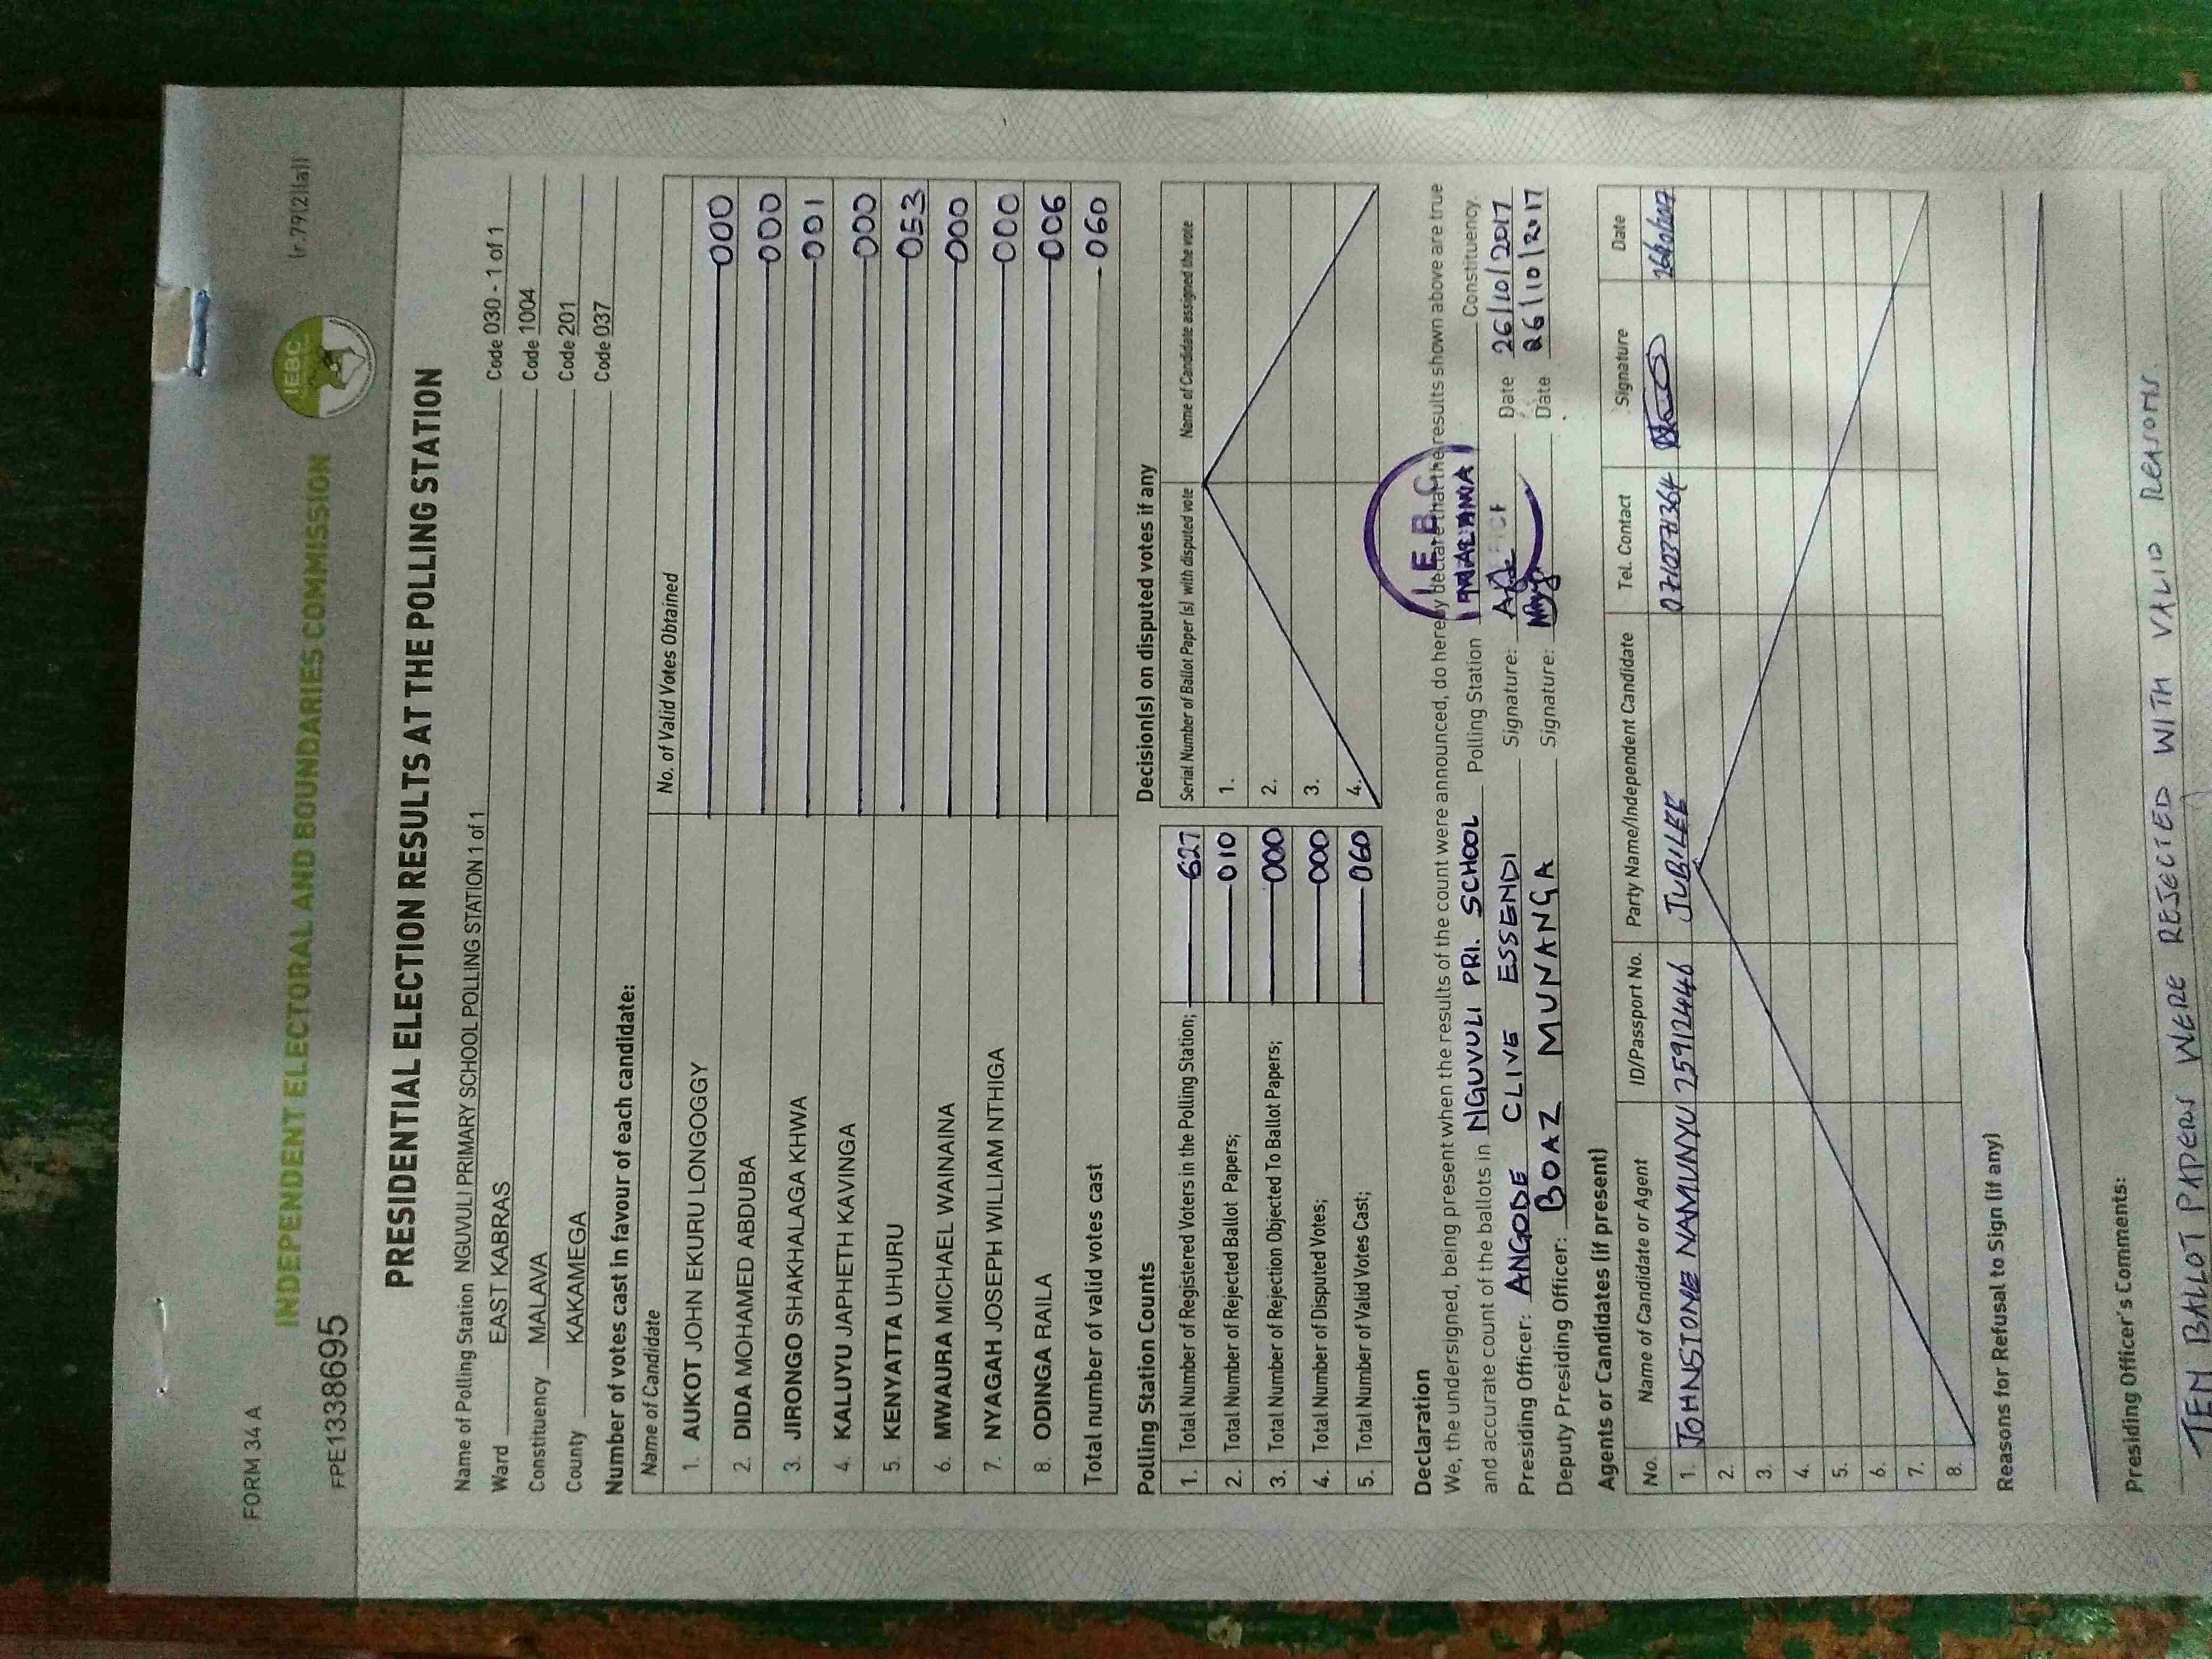 FORM 34 A
(r.79(2)(a))
INDEPENDENT ELECTORAL AND BOUNDARIES COMMISSION
IEBC
FPE1338695
PRESIDENTIAL ELECTION RESULTS AT THE POLLING STATION
Name of Polling Station NGUVULI PRIMARY SCHOOL POLLING STATION 1 of 1 Code 030 - 1 of 1
Ward EAST KABRAS Code 1004
Constituency MALAVA Code 201
County KAKAMEGA Code 037
Number of votes cast in favour of each candidate:
Name of Candidate No. of Valid Votes Obtained
1. AUKOT JOHN EKURU LONGOGGY 000
2. DIDA MOHAMED ABDUBA 000
3. JIRONGO SHAKHALAGA KHWA 001
4. KALUYU JAPHETH KAVINGA 000
5. KENYATTA UHURU 053
6. MWAURA MICHAEL WAINAINA 000
7. NYAGAH JOSEPH WILLIAM NTHIGA 000
8. ODINGA RAILA 006
Total number of valid votes cast 060
Polling Station Counts
1. Total Number of Registered Voters in the Polling Station; 627
2. Total Number of Rejected Ballot Papers; 010
3. Total Number of Rejection Objected To Ballot Papers; 000
4. Total Number of Disputed Votes; 000
5. Total Number of Valid Votes Cast; 060
Decision(s) on disputed votes if any
Serial Number of Ballot Paper (s) with disputed vote Name of Candidate assigned the vote
1.
2.
3.
4.
Declaration
We, the undersigned, being present when the results of the count were announced, do hereby declare that the results shown above are true
and accurate count of the ballots in NGUVULI PRI. SCHOOL Polling Station Constituency.
I.E.B.C
Presiding Officer: ANGODE CLIVE ESSENDI Signature: Date 26/10/2017
Deputy Presiding Officer: BOAZ MUNANGA Signature: Date 26/10/2017
Agents or Candidates (if present)
No. Name of Candidate or Agent ID/Passport No. Party Name/Independent Candidate Tel. Contact Signature Date
1. JOHNSTONE NAMUNYU 25912446 JUBILEE
2.
3.
4.
5.
6.
7.
8.
Reasons for Refusal to Sign (if any)
Presiding Officer's Comments:
TEN BALLOT PAPERS WERE REJECTED WITH VALID REASONS.